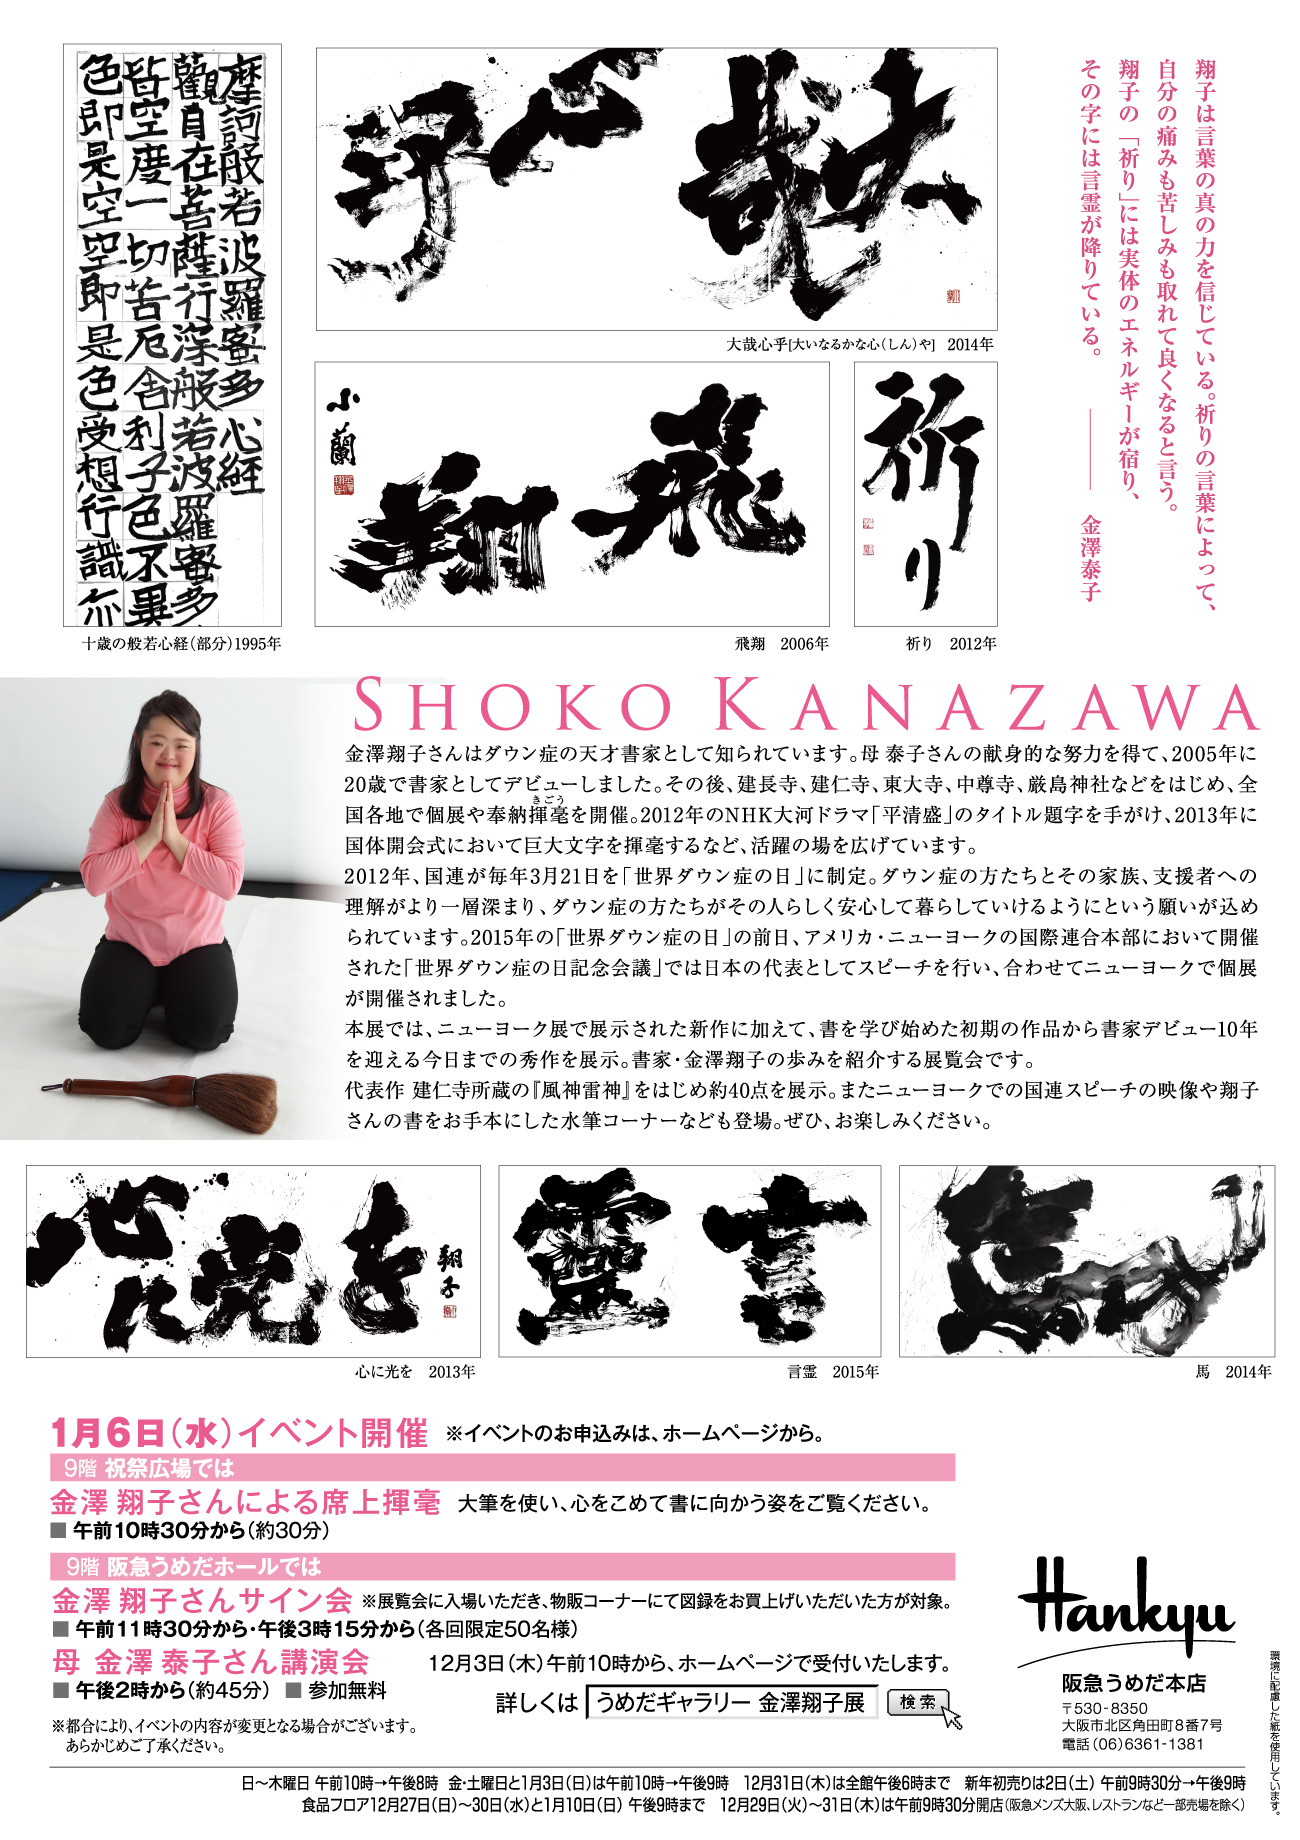 翔子は言葉の真の力を信じている。祈りの言葉によって、
自分の痛みも苦しみも取れて良くなると言う。
翔子の「祈り」には実体のエネルギーが宿り、
その字には言霊が降りている。 ―― 金澤泰子
摩訶般若波羅蜜多心経
觀自在菩薩行深般若波羅蜜多
皆空度一切苦厄舎利子色不異
色即是空空即是色受想行識亦
十歳の般若心経(部分)1995年
大哉
心乎
大哉心乎[大いなるかな心(しん)や] 2014年
飛翔
小蘭
飛翔 2006年
祈り
祈り 2012年
SHOKO KANAZAWA
金澤翔子さんはダウン症の天才書家として知られています。母 泰子さんの献身的な努力を得て、2005年に
20歳で書家としてデビューしました。その後、建長寺、建仁寺、東大寺、中尊寺、厳島神社などをはじめ、全
きごう
国各地で個展や奉納揮毫を開催。2012年のNHK大河ドラマ「平清盛」のタイトル題字を手がけ、2013年に
国体開会式において巨大文字を揮毫するなど、活躍の場を広げています。
2012年、国連が毎年3月21日を「世界ダウン症の日」に制定。ダウン症の方たちとその家族、支援者への
理解がより一層深まり、ダウン症の方たちがその人らしく安心して暮らしていけるようにという願いが込め
られています。2015年の「世界ダウン症の日」の前日、アメリカ・ニューヨークの国際連合本部において開催
された「世界ダウン症の日記念会議」では日本の代表としてスピーチを行い、合わせてニューヨークで個展
が開催されました。
本展では、ニューヨーク展で展示された新作に加えて、書を学び始めた初期の作品から書家デビュー10年
を迎える今日までの秀作を展示。書家・金澤翔子の歩みを紹介する展覧会です。
代表作 建仁寺所蔵の『風神雷神』をはじめ約40点を展示。またニューヨークでの国連スピーチの映像や翔子
さんの書をお手本にした水筆コーナーなども登場。ぜひ、お楽しみください。
心に光を
翔子
心に光を 2013年
言靈
言霊 2015年
馬
馬 2014年
1月6日(水)イベント開催 ※イベントのお申込みは、ホームページから。
9階 祝祭広場では
金澤 翔子さんによる席上揮毫 大筆を使い、心をこめて書に向かう姿をご覧ください。
■ 午前10時30分から(約30分)
9階 阪急うめだホールでは
金澤 翔子さんサイン会 ※展覧会に入場いただき、物販コーナーにて図録をお買上げいただいた方が対象。
■ 午前11時30分から・午後3時15分から(各回限定50名様)
母 金澤 泰子さん講演会 12月3日(木)午前10時から、ホームページで受付いたします。
■ 午後2時から(約45分) ■ 参加無料
詳しくは うめだギャラリー 金澤翔子展 検索
※都合により、イベントの内容が変更となる場合がございます。
あらかじめご了承ください。
Hankyu
阪急うめだ本店
〒530-8350
大阪市北区角田町8番7号
電話(06)6361-1381
環境に配慮した紙を使用しています。
日〜木曜日 午前10時→午後8時 金・土曜日と1月3日(日)は午前10時→午後9時 12月31日(木)は全館午後6時まで 新年初売りは2日(土) 午前9時30分→午後9時
食品フロア12月27日(日)〜30日(水)と1月10日(日) 午後9時まで 12月29日(火)〜31日(木)は午前9時30分開店(阪急メンズ大阪、レストランなど一部売場を除く)